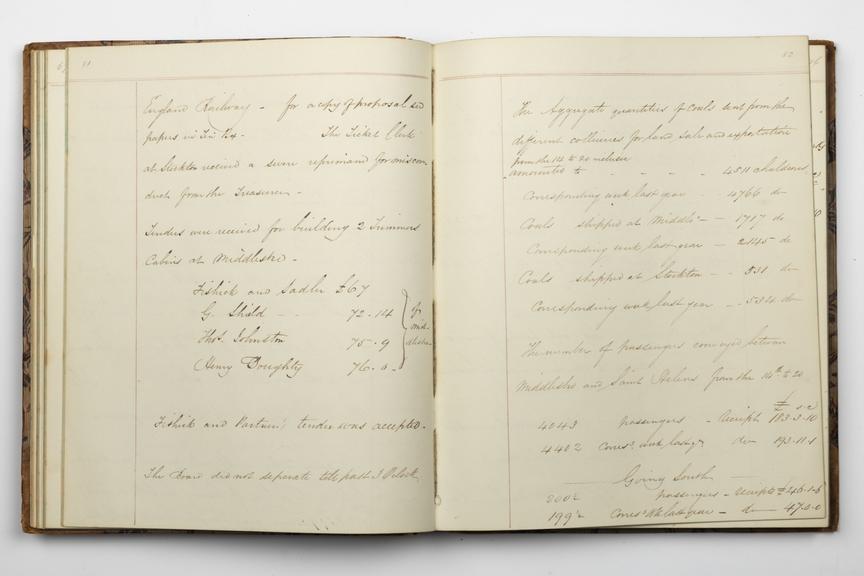 81
England Railway – for a copy of proposal and
papers in Tin Box.   The Ticket Clerk
at Stockton received a severe reprimand for miscon
duct from the Treasurer –
Tenders were received for building 2 Trimmers
Cabins at Middlesbro –
Fishick and Sadler £67
G. Shield – – 72 . 14
Thos. Johnston 75 . 9
Henry Doughty 76 . 0 –
of
Mid-
dlesbro
Fishick and Partners' tender was accepted –
The Board did not separate till past 3 O'Clock
82
The Aggregate quantities of Coals sent from the
different collieries for land sale and exportation
from the 14 to 20 inclusive
amounted to – – – – 4511 chaldrons
Corresponding week last year 4766 do
Coals shipped at Middlo – – 1717 do
Corresponding week last year – 2145 do
Coals shipped at Stockton – – 531 do
Corresponding week last year – 534 do
The number of passengers conveyed between
Middlesbro and Saint Helens from the 14th to 20
£ s d
4043 passengers – Receipts 183-3-10
4402 Corresg. week last yr do 193-11-1
Going South
2002 passengers – receipts £46-1-6
1992 Corresg Wk last year – do 47-0-0